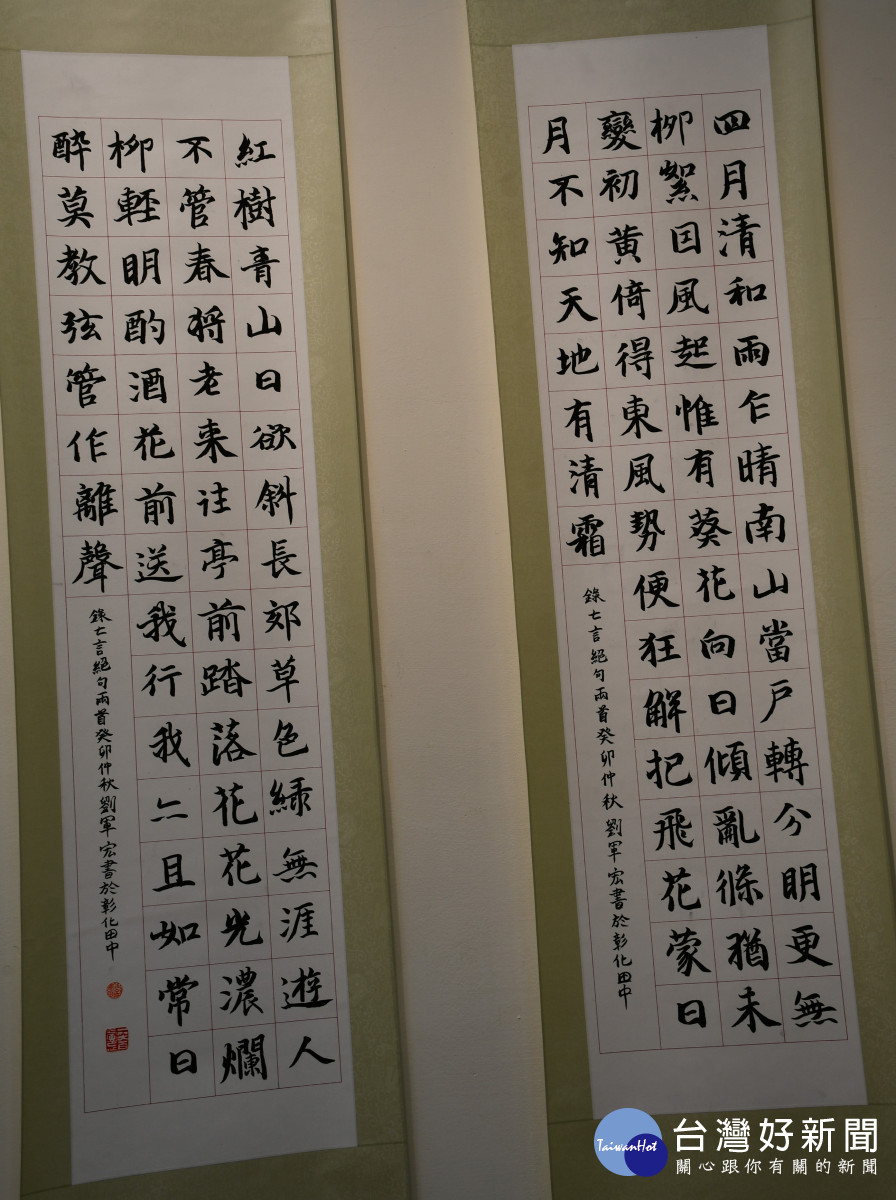 四月清和雨乍晴南山當戶轉分明更無
柳絮因風起惟有葵花向日傾亂條猶未
變初黃倚得東風勢便狂解把飛花蒙日
月不知天地有清霜
錄七言絕句兩首癸卯仲秋劉軍宏書於彰化田中
紅樹青山日欲斜長郊草色綠無涯遊人
不管春將老來往亭前踏落花花光濃爛
柳輕明酌酒花前送我行我亦且如常日
醉莫教弦管作離聲
錄七言絕句兩首癸卯仲秋劉軍宏書於彰化田中
TaiwanHot
台灣好新聞
關心跟你有關的新聞